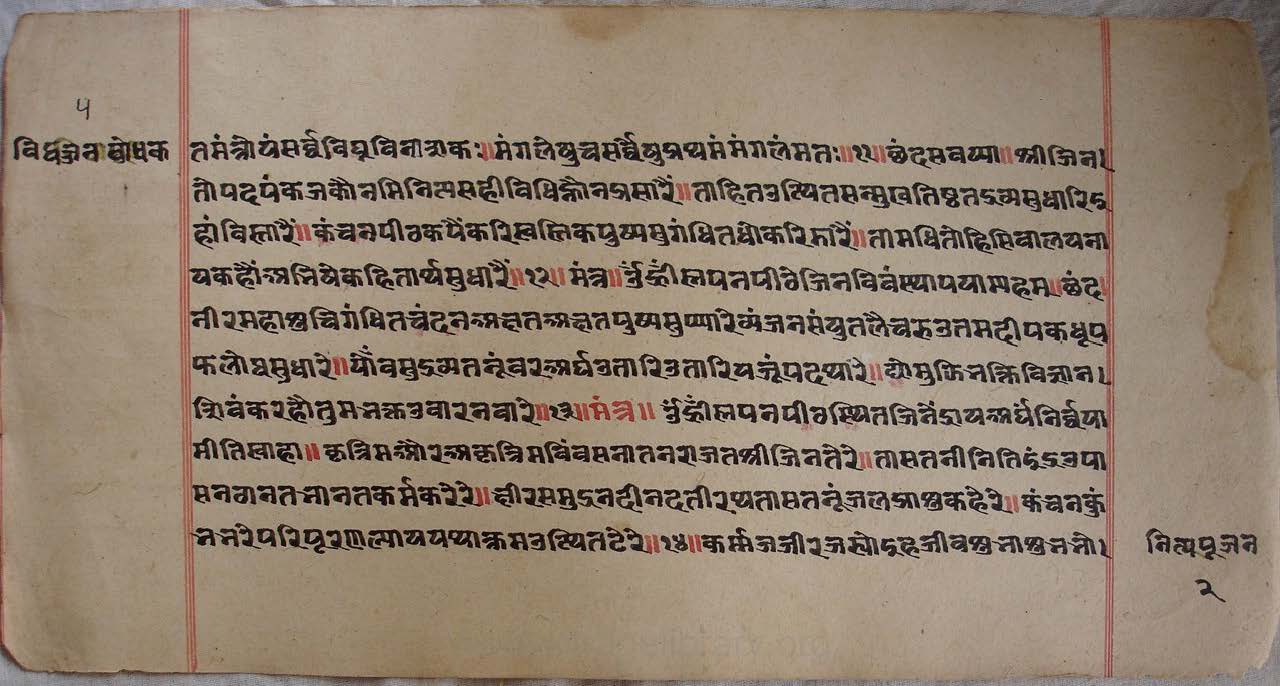 ५
विद्वज्जनबोधक
तमंत्रोयंसर्व्वविघ्नविनाशकः॥मंगलेषुचसर्व्वेषुप्रथमंमंगलंमतः॥११॥छंदसवय्या॥श्रीजिन।
तोपदपंकजकौनमिनित्यसहीविधिह्नौनप्रसारैं॥ताहितउत्थितसन्मुखतिष्ठतद्रव्यसुधारिइ
हांविस्तारैं॥कंचनपीठकपैंकरिस्वस्तिकपुष्पसुगंधितधोकरिझारैं॥तामधितोहिसिवालयना
यकहौंअभिषेकहितार्थसुधारैं॥१२॥मंत्र॥ॐह्रीँस्नपनपीठेजिनबिंबंस्थापयाम्यहम्॥छंद
नीरमहाशुचिगंधितचंदनअक्षतअक्षतपुष्पसुप्यारेव्यंजनसंयुतलैचरुउतमदीपकधूप
फलोघसुधारे॥यौंवसुद्रव्यतनूंवरअर्घउतारिउतारियजूंपदथारे॥द्योमुक्तिभक्तिविज्ञान।
शिवंकरहौतुमभक्तउवारनवारे॥१३॥मंत्र॥ॐह्रीँस्नपनपीठस्थितजिनेंद्रायअर्घंनिर्व्वपा
मीतिस्वाहा॥कृत्रिमऔरअकृत्रिमबिंबसनातनराजतश्रीजिनतेरे॥तासतनीनितिइंद्रउपा
सनठानतभानतकर्मकरेरे॥क्षीरसमुद्रनदीनदतीरथतासतनूंजलप्राशुकहेरे॥कंचनकुं
भभरेपरिपूरणल्याययथाक्रमउत्थितटेरे॥१४॥कर्म्मजजीरजस्योइहजीवशुभाशुभभो।
नित्यपूजन
२